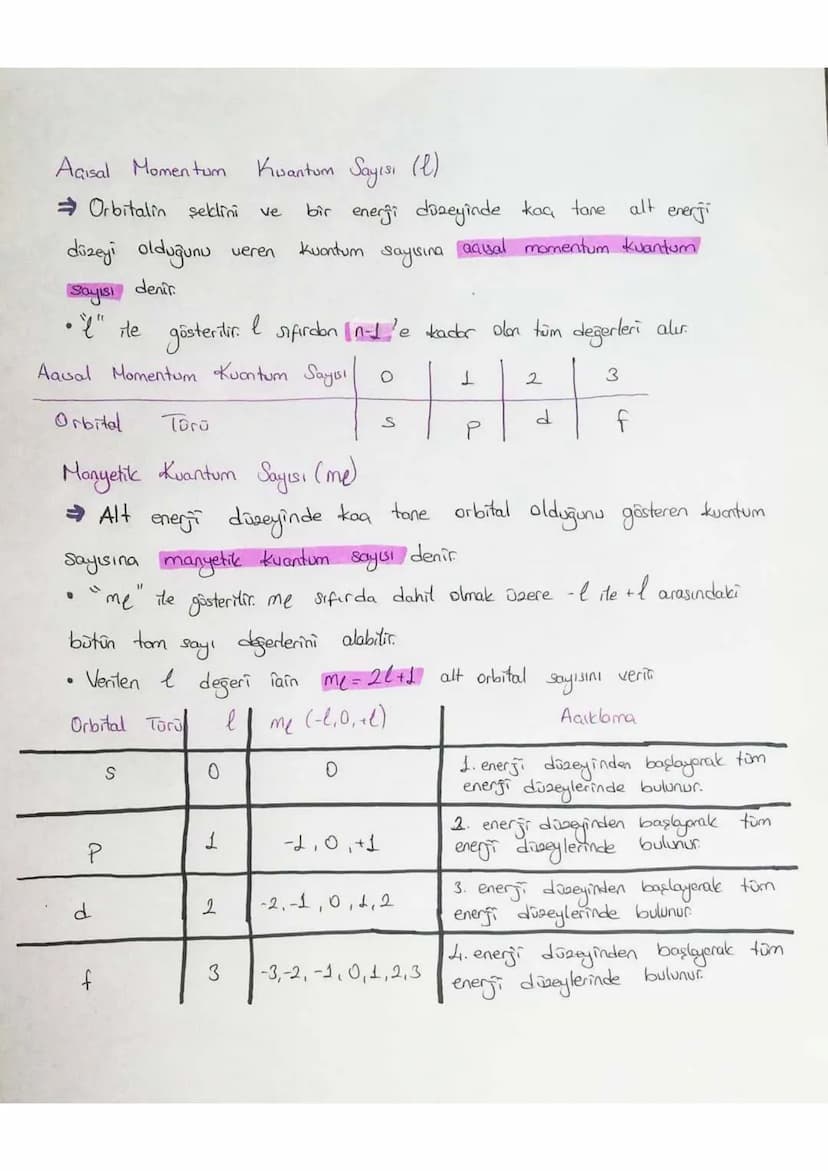 Açısal Momentum Kuantum Sayısı (l)
⇒ Orbitalin şeklini ve bir enerji düzeyinde kaç tane alt enerji
düzeyi olduğunu veren kuantum sayısına açısal momentum kuantum
sayısı denir.
• "l" ile gösterilir. l sıfırdan n-1 'e kadar olan tüm değerleri alır.
Açısal Momentum Kuantum Sayısı 0 1 2 3
Orbital Türü s p d f
Manyetik Kuantum Sayısı (ml)
⇒ Alt enerji düzeyinde kaç tane orbital olduğunu gösteren kuantum
sayısına manyetik kuantum sayısı denir.
• "ml" ile gösterilir. ml sıfırda dahil olmak üzere -l ile +l arasındaki
bütün tam sayı değerlerini alabilir.
• Verilen l değeri için ml = 2l+1 alt orbital sayısını verir
Orbital Türü l ml (-l, 0, +l) Açıklama
s 0 0 1. enerji düzeyinden başlayarak tüm
enerji düzeylerinde bulunur.
p 1 -1, 0, +1 2. enerji düzeyinden başlayarak tüm
enerji düzeylerinde bulunur.
d 2 -2, -1, 0, 1, 2 3. enerji düzeyinden başlayarak tüm
enerji düzeylerinde bulunur.
f 3 -3, -2, -1, 0, 1, 2, 3 4. enerji düzeyinden başlayarak tüm
enerji düzeylerinde bulunur.